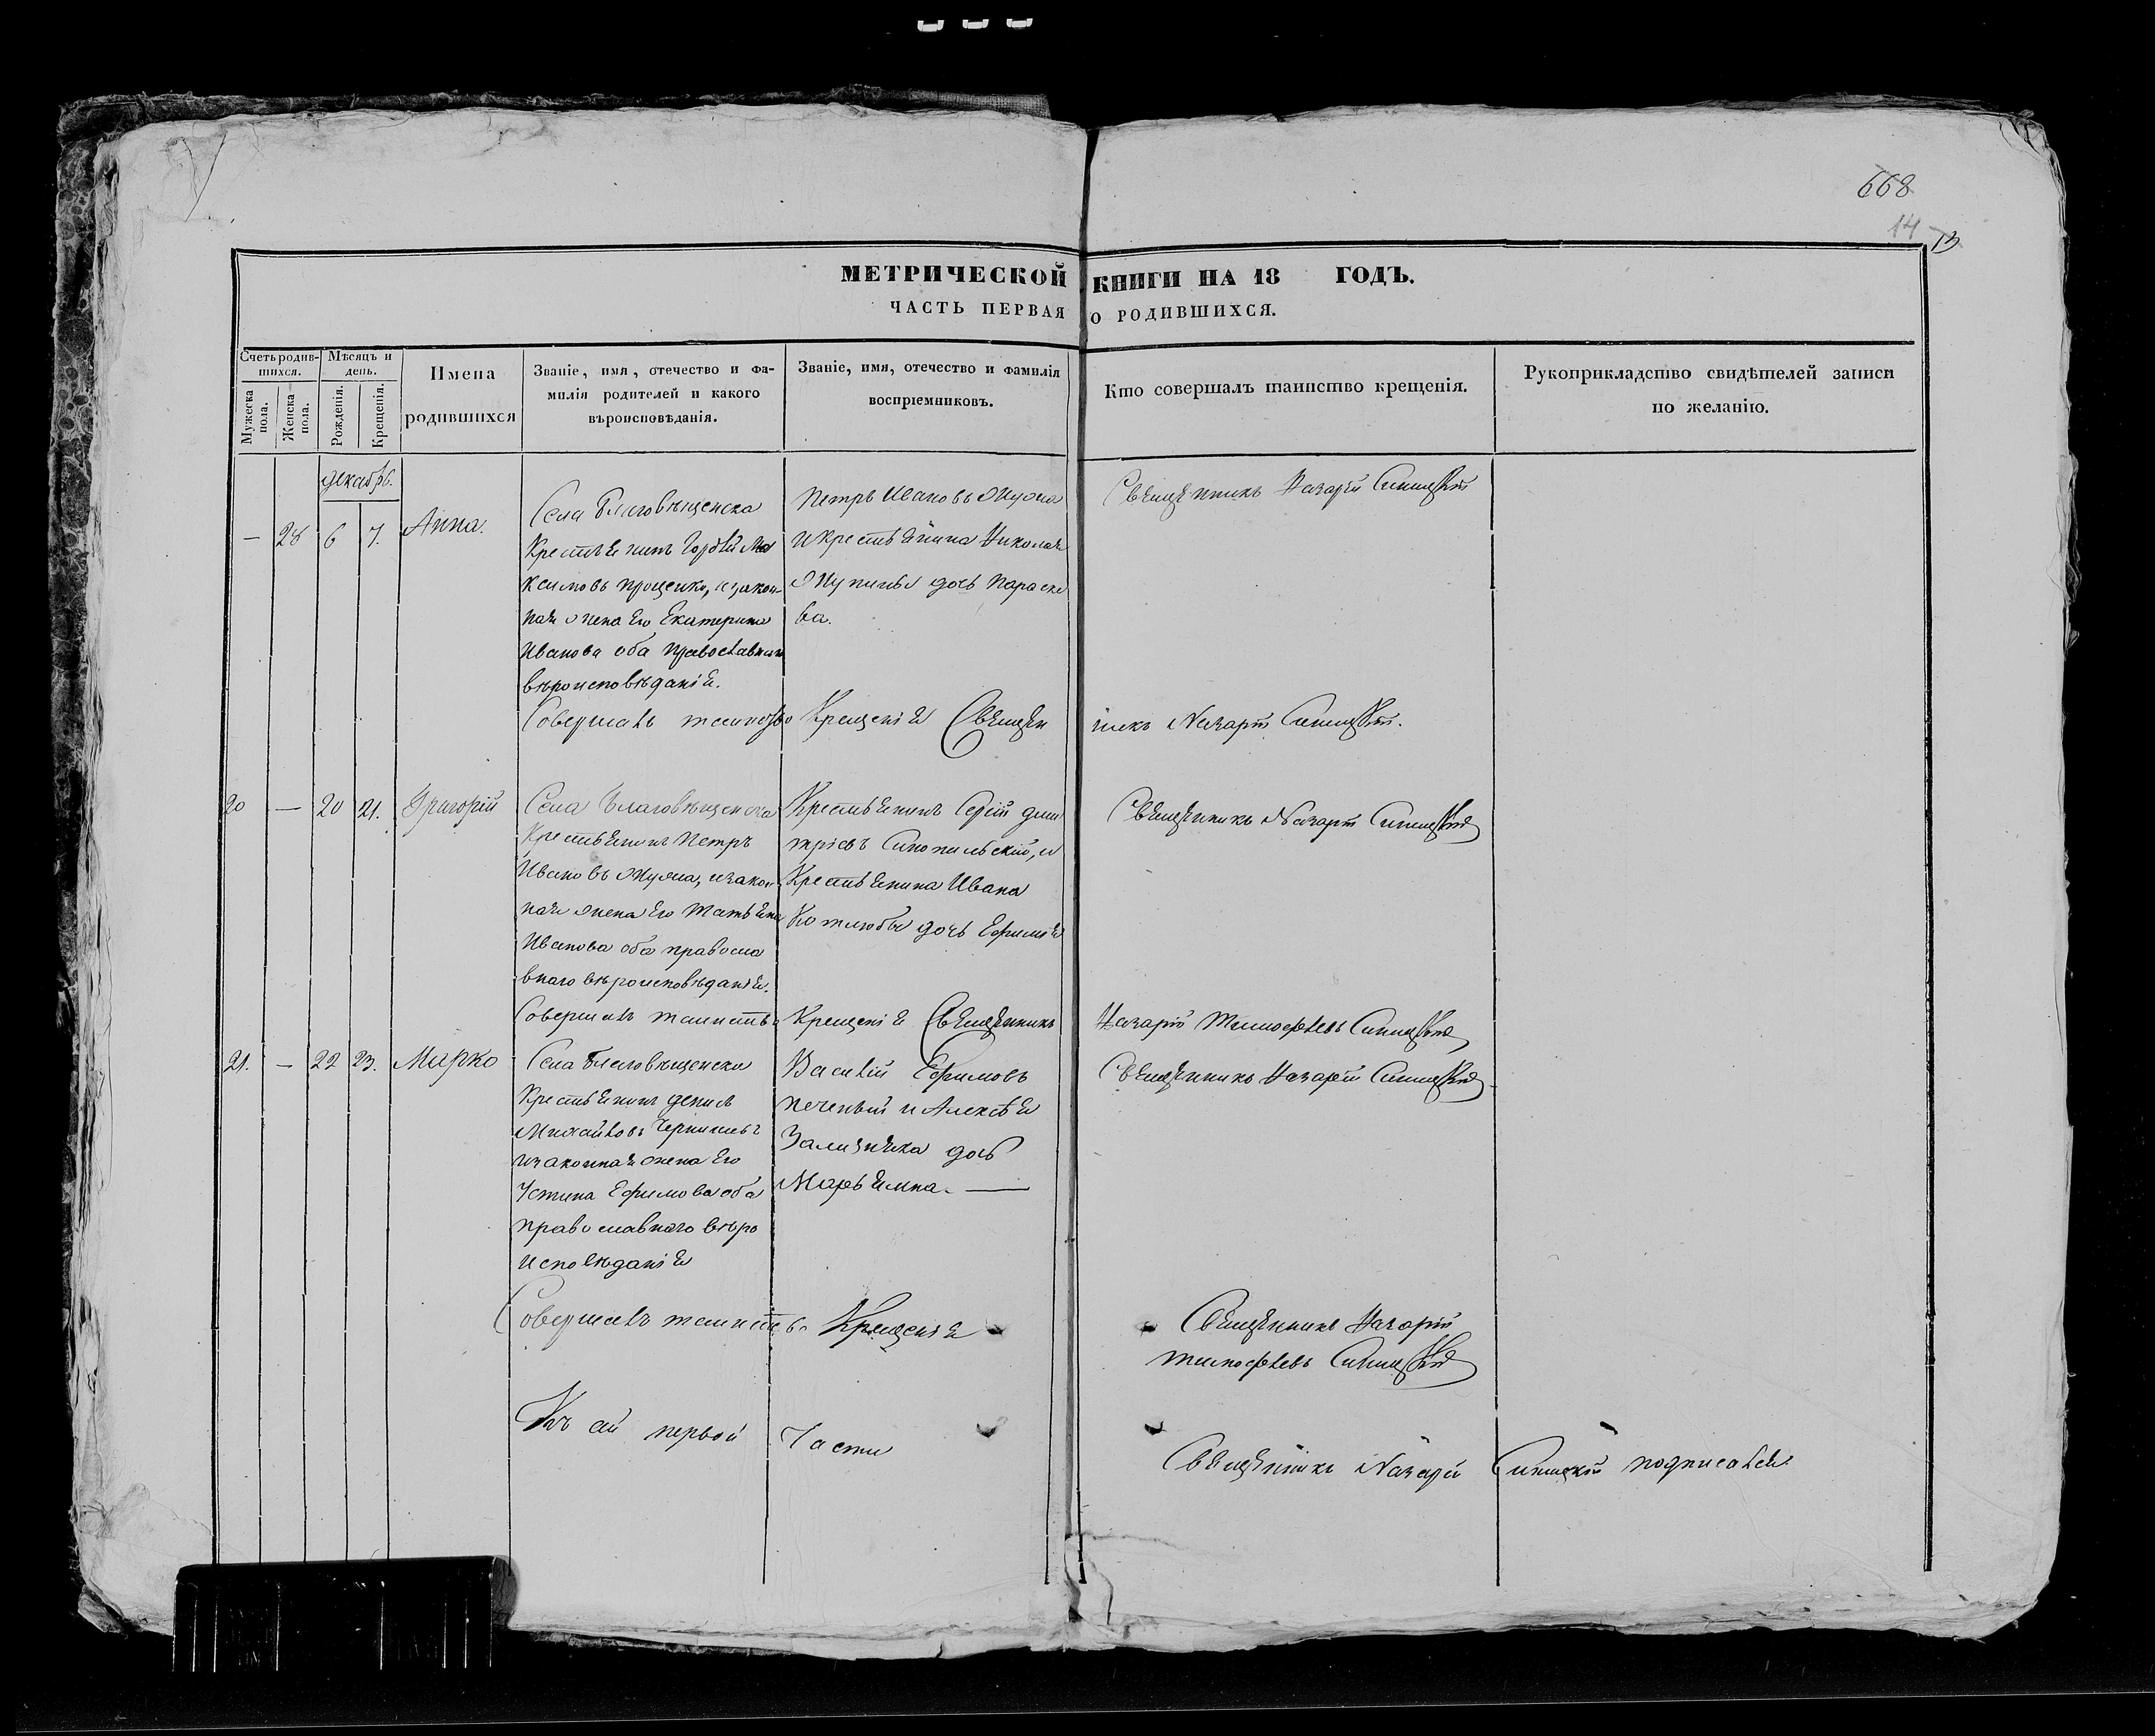 668
14
13
МЕТРИЧЕСКОЙ КНИГИ НА 18 ГОДЪ.
ЧАСТЬ ПЕРВАЯ О РОДИВШИХСЯ.
Счетъ родив-
шихся.
Мужеска
пола.
Женска
пола.
Мѣсяцъ и
день.
Рожденія.
Крещенія.
Имена
родившихся
Званіе, имя, отечество и фа-
милія родителей и какого
вѣроисповѣданія.
Званіе, имя, отечество и фамилія
воспріемниковъ.
Кто совершалъ таинство крещенія.
Рукоприкладство свидѣтелей записи
по желанію.
декабрь.
— 28 6 7. Анна.
Села Благовѣщенска
Крестьянинъ Ма
ксимовъ Проценко, и закон-
ная жена его Екатерина
Иванова оба православнаго
вѣроисповѣданія.
Петръ Ивановъ Жупа
и Крестьянина Николая
Жупины дочь Параске
ва.
Священникъ Назарій
Совершалъ таинство Крещенія Священ
никъ Назарій
20 — 20 21. Григорій
Села Благовѣщенска
Крестьянинъ Петръ
Ивановъ Жупа, и закон-
ная жена его Татьяна
Иванова оба правосла
внаго вѣроисповѣданія.
Крестьянинъ Сергій Дми
тріевъ Синопильскій, и
Крестьянина Ивана
Котлюбы дочь Ефимія
Священникъ Назарій
Совершалъ таинство Крещенія Священникъ
Назарій Тимофѣевъ
21. — 22 23. Марко
Села Благовѣщенска
Крестьянинъ Денисъ
Михайловъ
и законная жена его
Устина Ефимова оба
православнаго вѣро
исповѣданія
Василій Ефимовъ
Печеный и Алексѣя
Зализняка дочь
Марьямна. —
Священникъ Назарій
Совершалъ таинство Крещенія
Священникъ Назарій
Тимофѣевъ
первой Части
Священникъ Назарій подписался